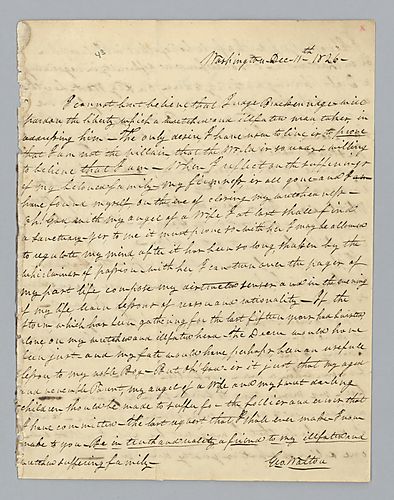 43
Washington Dec 11th 1826 -
I cannot but believe that Judge Brackenridge will
pardon the liberty which a wretched and illfated man takes in
addressing him - The only desire I have now to live is to prove
that I am not the villain that the World is so ready & willing
to believe that I am - When I reflect on the sufferings
of my beloved family my firmness is all gone and I
have found myself on the eve of closing my wretchedness -
Oh! God with my angel of a Wife I at last shall find
a sanctuary - for to me it must prove so with her I may be allowed
to regulate my mind after it has been so long shaken by the
whirlwind of passions with her I can turn over the pages of
my past life compose my distracted senses and in the evening
of my life learn lessons of reason and rationality - If the
storm which has been gathering for the last fifteen years had burst
alone on my wretched and illfated head - The Decree would have
been just - and my fate would have perhaps been an usefull
lesson to my noble Boy - But Oh! God is it just that my aged
and venerable Parent, my angel of a Wife and my sweet darling
children should be made to suffer for the follies and errors that
I have committed - The last request that I shall ever make I now
make to you Be in truth and reality a friend to my illfated and
wretched suffering family -
Geo. Walton